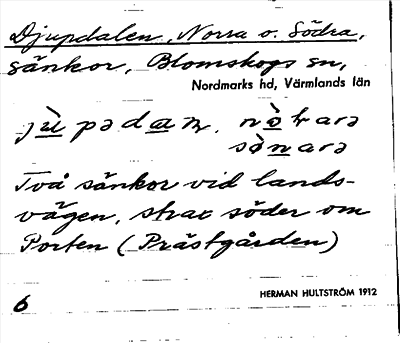 Djupdalen, Norra o. Södra,
sänkor, Blomskogs sn,
Nordmarks hd, Värmlands län
Två sänkor vid lands-
vägen, strax söder om
Porten (Prästgården)
6
HERMAN HULTSTRÖM 1912